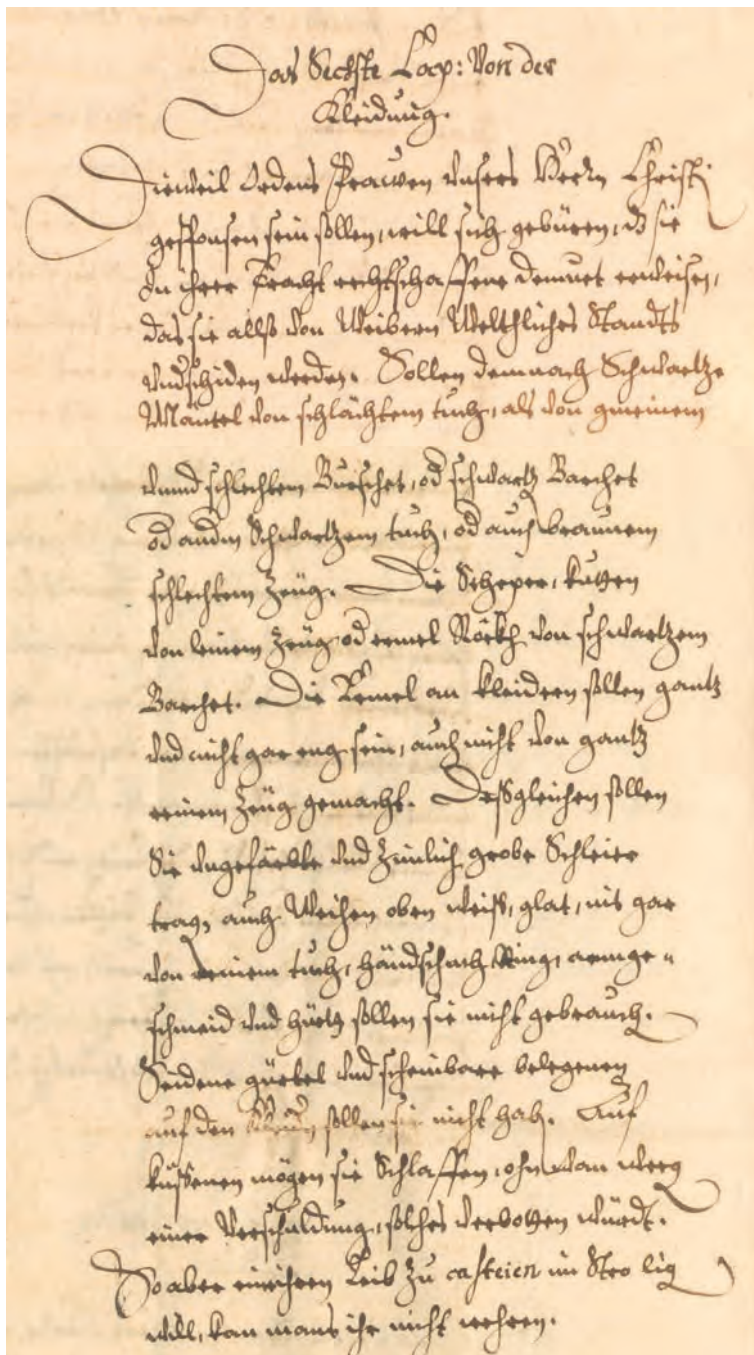 Das Sechste Cap: Von der
Kleidung.
Dieweil Ordens Frauwen vnsers Herrn Christi
gesponsen sein sollen, will sich gebüren, dz sie
In ihrer Tracht rechtschaffene demuet erweisen,
das sie allß von Weibern Weltliches Standts
vndschiden werden. Sollen demnach Schwartze
Mäntel von schlächtem tuch, als von gmeinem
vnnd schlechtem Burschet, od schwartz Barchet
od andm Schwartzem tuch, od auch braunem
schlechtem Zeüg. Die Scheper, kutten
von leinem Zeüg od ermel Röckh von schwartzem
Barchet. Die Ermel an kleidern sollen gantz
vnd nicht gar eng sein, auch nicht von gantz
reinem Zeüg gemacht. Deßgleichen sollen
Sie vngefärbte vnd Zimlich grobe Schleier
trag, auch Weihen oben weiß, glat, nit gar
von reinem tuch, händschuch, Ring, armge-
schmeid vnd hüetz sollen sie nicht gebrauch.
Seidene gürtel vnd scheinbare belegenen
auf den sollen sie nicht hab. Auf
küssenen mögen sie Schlaffen, ohn wan weg
einer Verschuldung, solches verbotten würdt.
So aber ein ihren Leib Zu casteien im Stro lig
will, kan mans ihr nicht wehren.